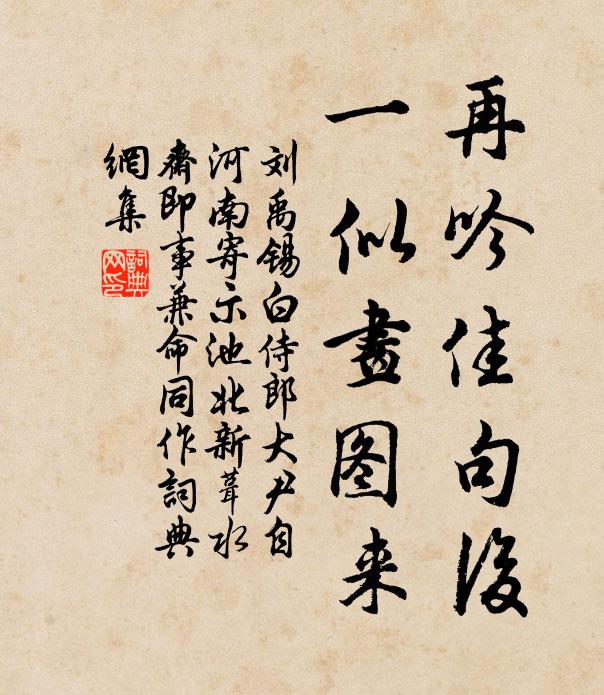 再吟佳句後
一似畫图来
刘禹锡白侍郎大尹自
河南寄示池北新葺水
齋即事兼命同作詞典
網集
詞典網印